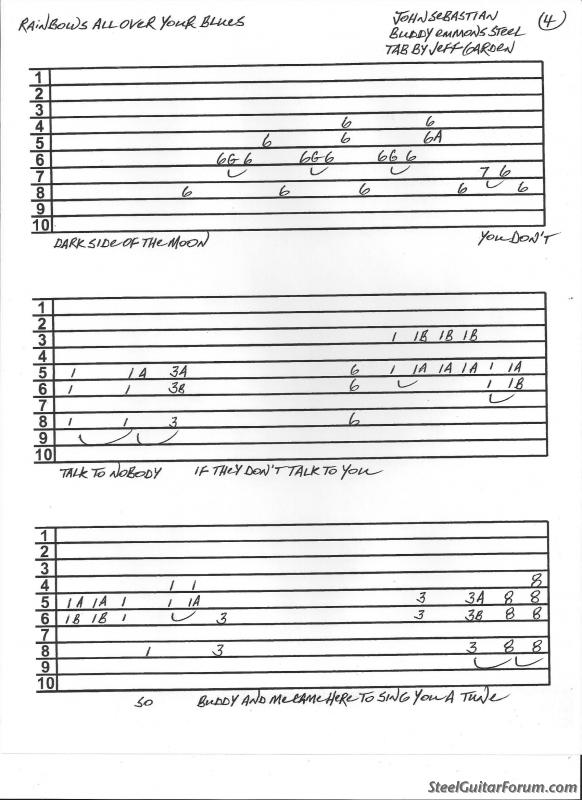 RAINBOWS ALL OVER YOUR BLUES
JOHN SEBASTIAN
BUDDY EMMONS STEEL
TAB BY JEFF GARDEN
4
1
2
3
4 6 6
5 6 6 6A
6 6G 6 6G 6 6G 6
7 7 6
8 6 6 6 6 6
9
10
DARK SIDE OF THE MOON YOU DON'T
1
2
3 1 1B 1B 1B
4
5 1 1A 3A 6 1 1A 1A 1A 1 1A
6 1 1 3B 6 1 1B
7
8 1 1 3 6
9
10
TALK TO NOBODY IF THEY DON'T TALK TO YOU
1
2
3
4 1 1 8
5 1A 1A 1 1 1A 3 3A 8 8
6 1B 1B 1 3 3 3B 8 8
7
8 1 3 3 8 8
9
10
SO BUDDY AND ME CAME HERE TO SING YOU A TUNE
SteelGuitarForum.com